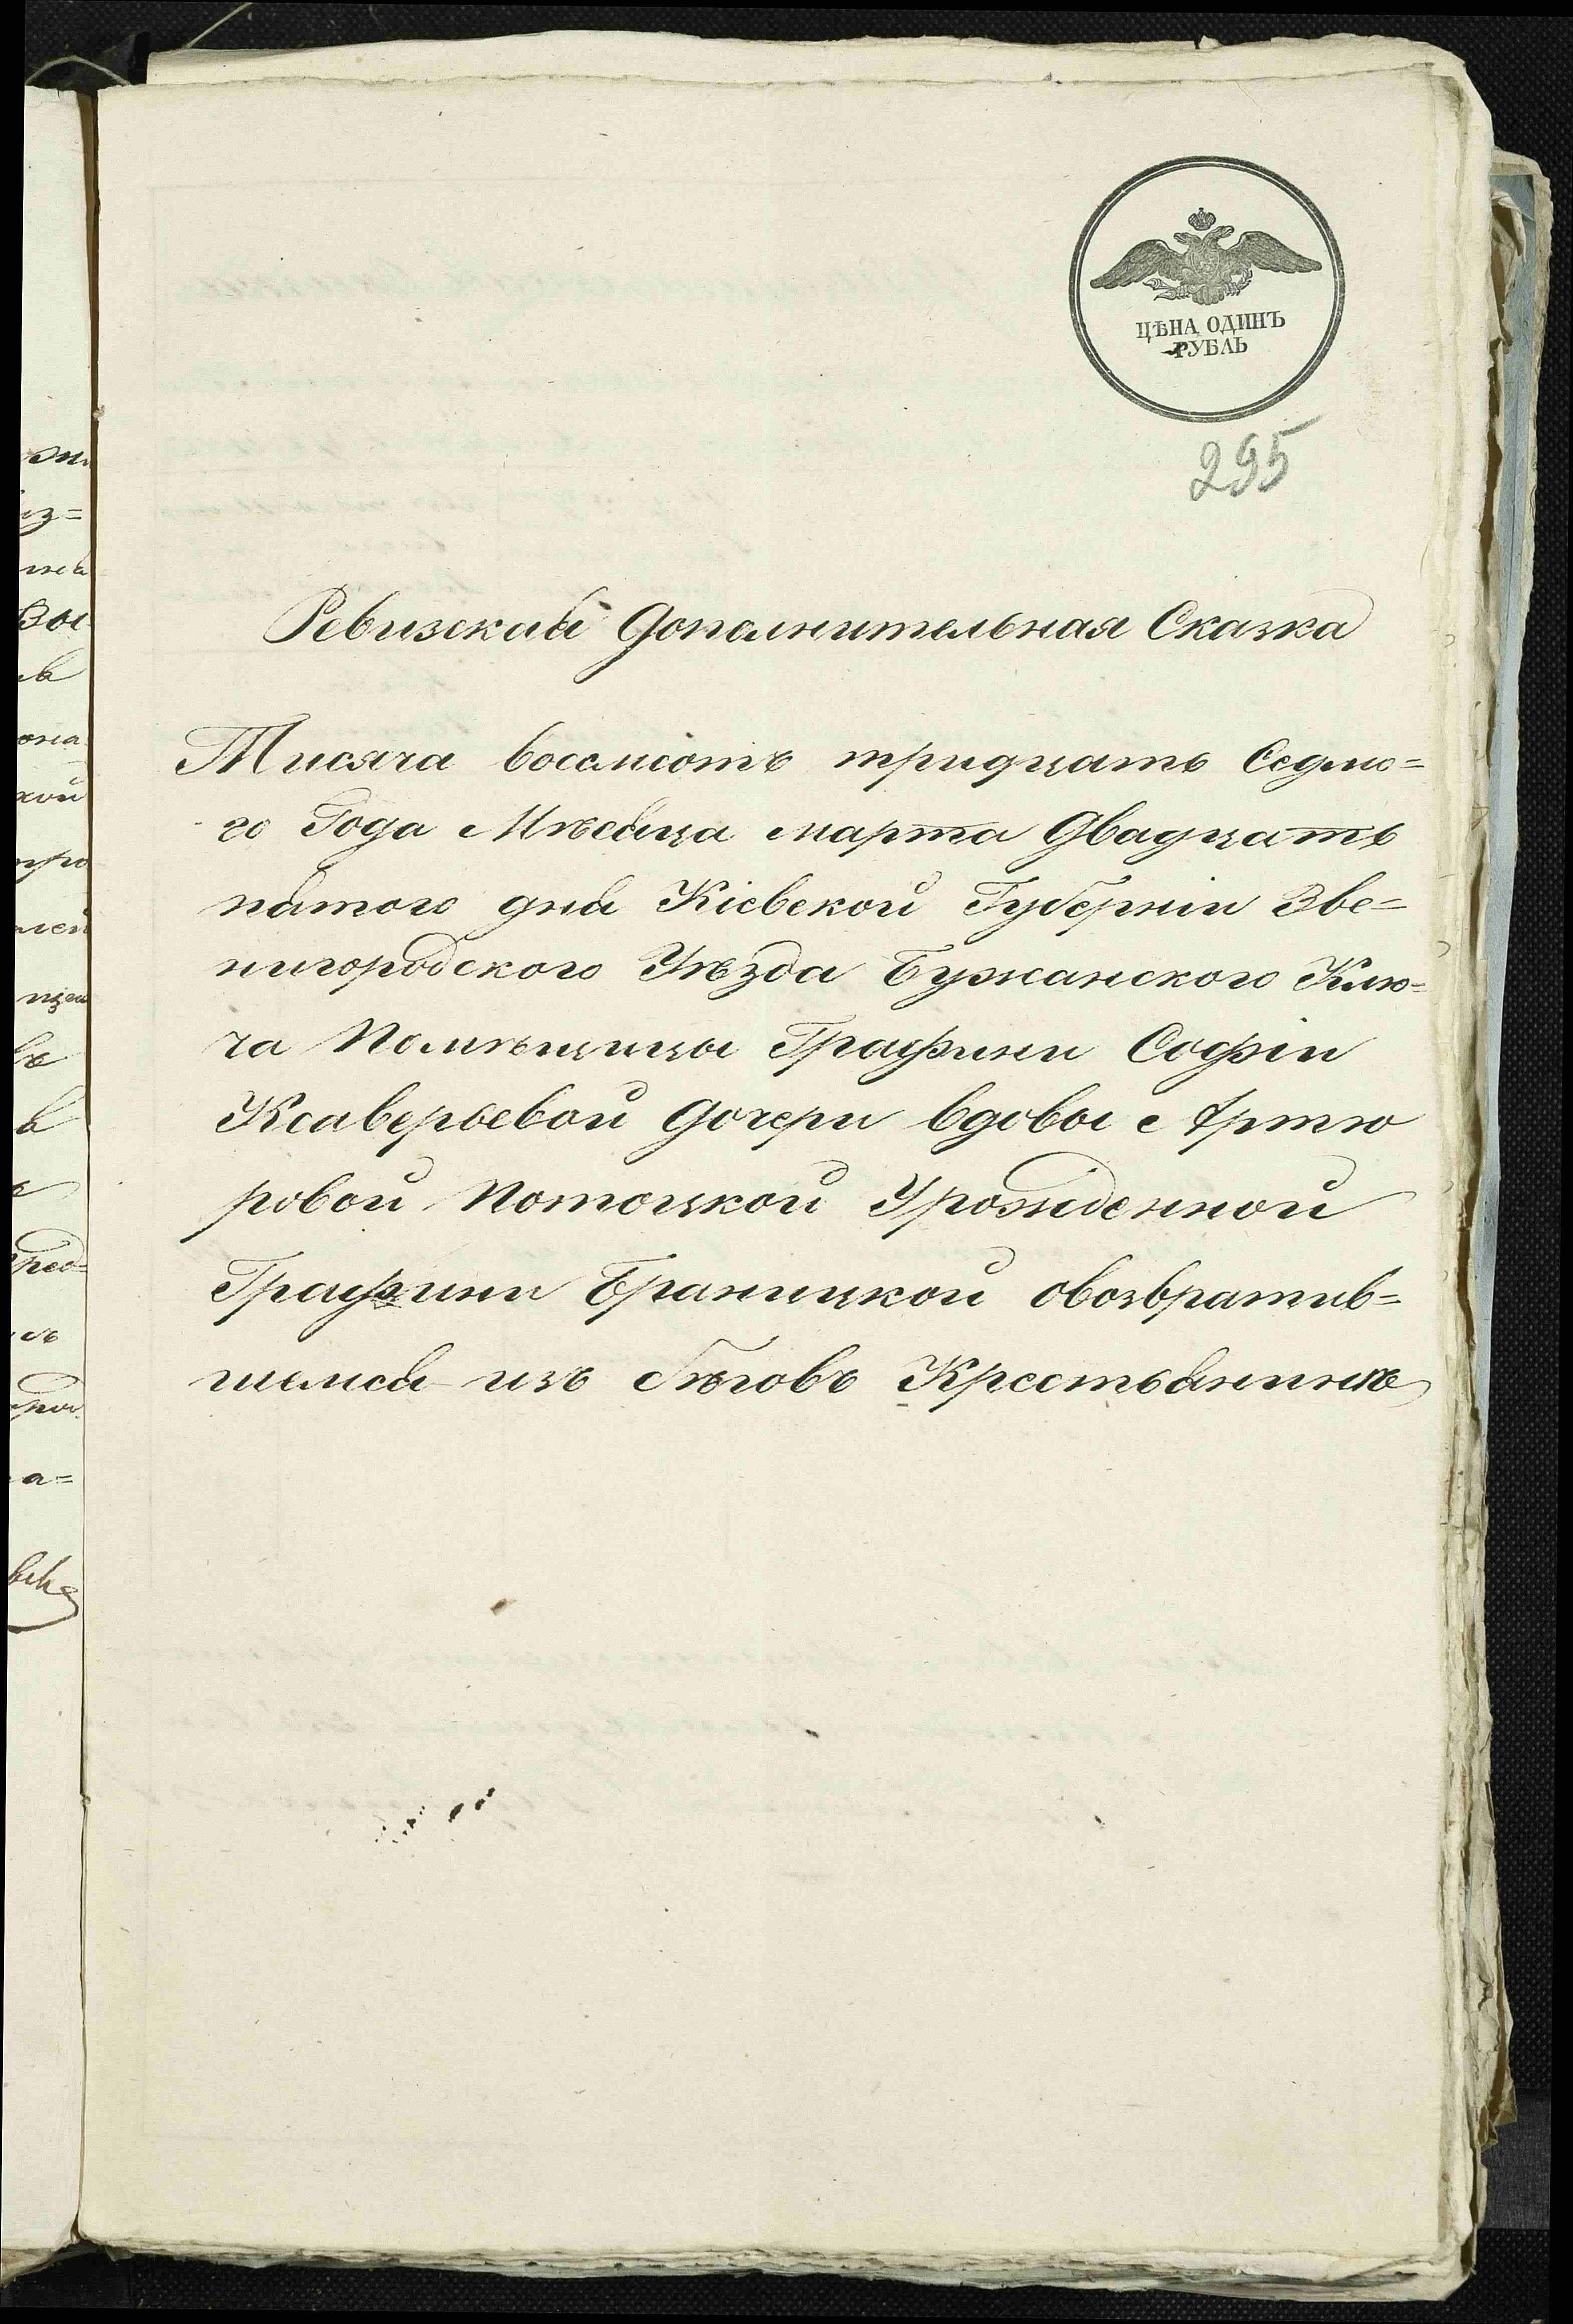 ЦѢНА ОДИНЪ
РУБЛЬ
295
Ревизская Дополнительная Сказка
Тисяча восемсотъ тридцать Седмо=
го Года Мѣсяца марта Двадцать
пятого дня Кіевской Губерніи Зве=
нигородского Уѣзда Бужанского Клю=
ча Помѣщицы Графини Софіи
Ксаверьевой Дочери вдовы Артю
ровой Потоцкой Урожденной
Графини Браницкой овозвратив=
шемся изъ бѣговъ Крестьянинѣ